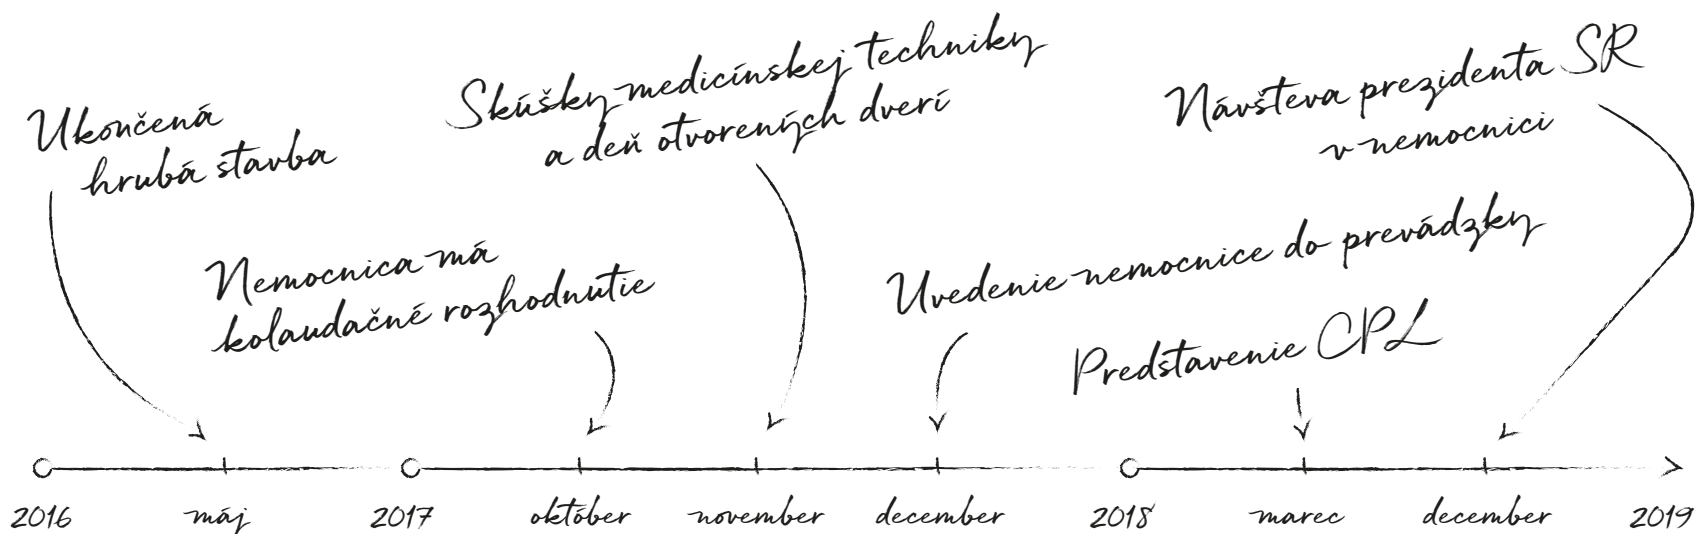 Ukončená
hrubá stavba
Nemocnica má
kolaudačné rozhodnutie
Skúšky medicínskej techniky
a deň otvorených dverí
Uvedenie nemocnice do prevádzky
Predstavenie CPL
Návšteva prezidenta SR
v nemocnici
2016 máj 2017 október november december 2018 marec december 2019